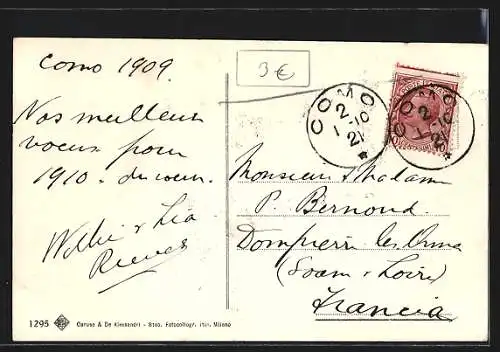 Como 1909.
3 €
COMO
2-10
1 21
COMO
2-10
21
Nos meilleurs
voeux pour
1910 - du coeur.
Willie & Lia
Reeves
Monsieur & Madame
P. Bernoud
Dompierre les Ormes
(Soane & Loire)
Francia
1295
Caruso & De Alessandri - Stab. Fotocollogr. ital. Milano